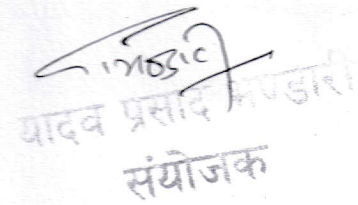 यादव प्रसाद भण्डारी
संयोजक